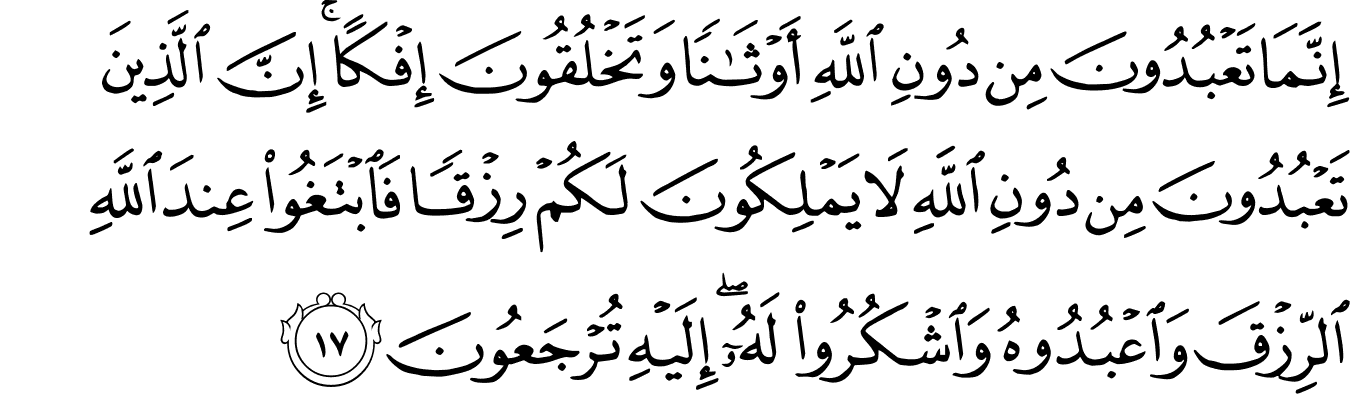 إِنَّمَا تَعْبُدُونَ مِن دُونِ ٱللَّهِ أَوْثَـٰنًا وَتَخْلُقُونَ إِفْكًا ۚ إِنَّ ٱلَّذِينَ
تَعْبُدُونَ مِن دُونِ ٱللَّهِ لَا يَمْلِكُونَ لَكُمْ رِزْقًا فَٱبْتَغُوا۟ عِندَ ٱللَّهِ
ٱلرِّزْقَ وَٱعْبُدُوهُ وَٱشْكُرُوا۟ لَهُۥٓ ۖ إِلَيْهِ تُرْجَعُونَ ١٧